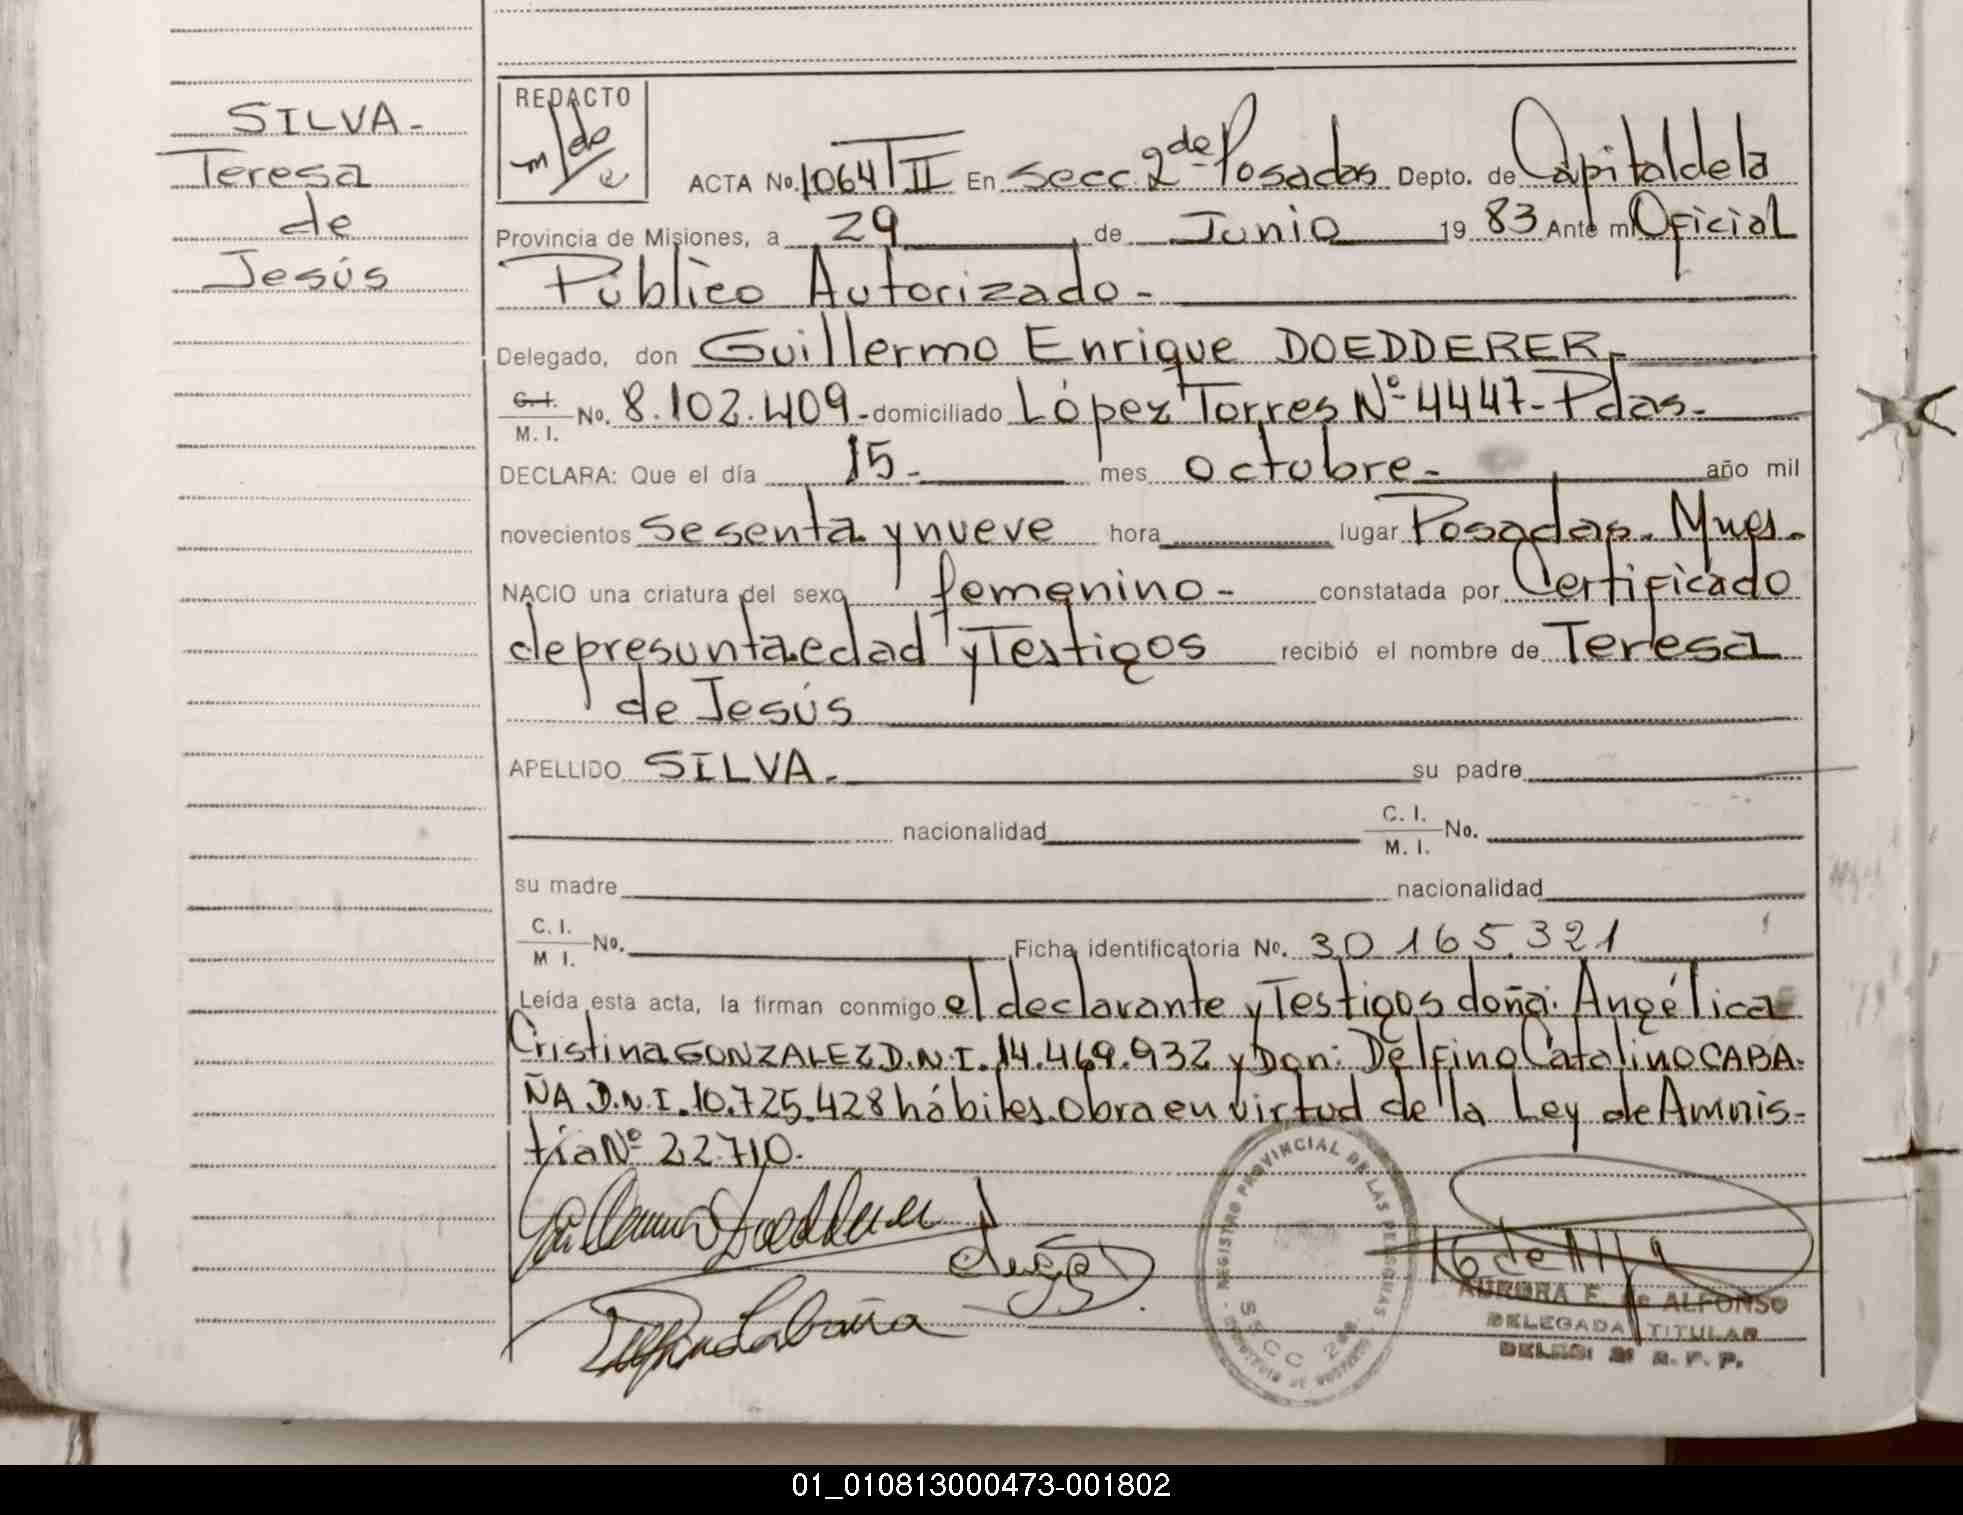 SILVA.
Teresa
de
Jesús
REDACTO
ACTA No. 1064 T II En Secc. 2 de Posadas Depto. de Capital de la
Provincia de Misiones, a 29 de Junio 19 83 Ante mí Oficial
Público Autorizado-
Delegado, don Guillermo Enrique DOEDDERER.
C. I.
M. I. No. 8.102.409- domiciliado López Torres Nº 4447- Pdas-
DECLARA: Que el día 15- mes octubre- año mil
novecientos sesenta y nueve hora lugar Posadas. Mnes.
NACIO una criatura del sexo femenino- constatada por Certificado
de presunta edad y Testigos recibió el nombre de Teresa
de Jesús
APELLIDO SILVA. su padre
nacionalidad C. I.
M. I. No.
su madre nacionalidad
C. I.
M I. No. Ficha identificatoria No. 30 165.321
Leída esta acta, la firman conmigo el declarante y Testigos doña: Angélica
Cristina GONZALEZ D.N.I. 14.469.932 y Don: Delfino Catalino CABA-
ÑA D.N.I. 10.725.428 hábiles. Obra en virtud de la Ley de Amnis-
tía Nº 22.710.
REGISTRO PROVINCIAL DE LAS PERSONAS
SECC 2da
AURORA E. de ALFONSO
DELEGADA TITULAR
R. P. P.
01_010813000473-001802